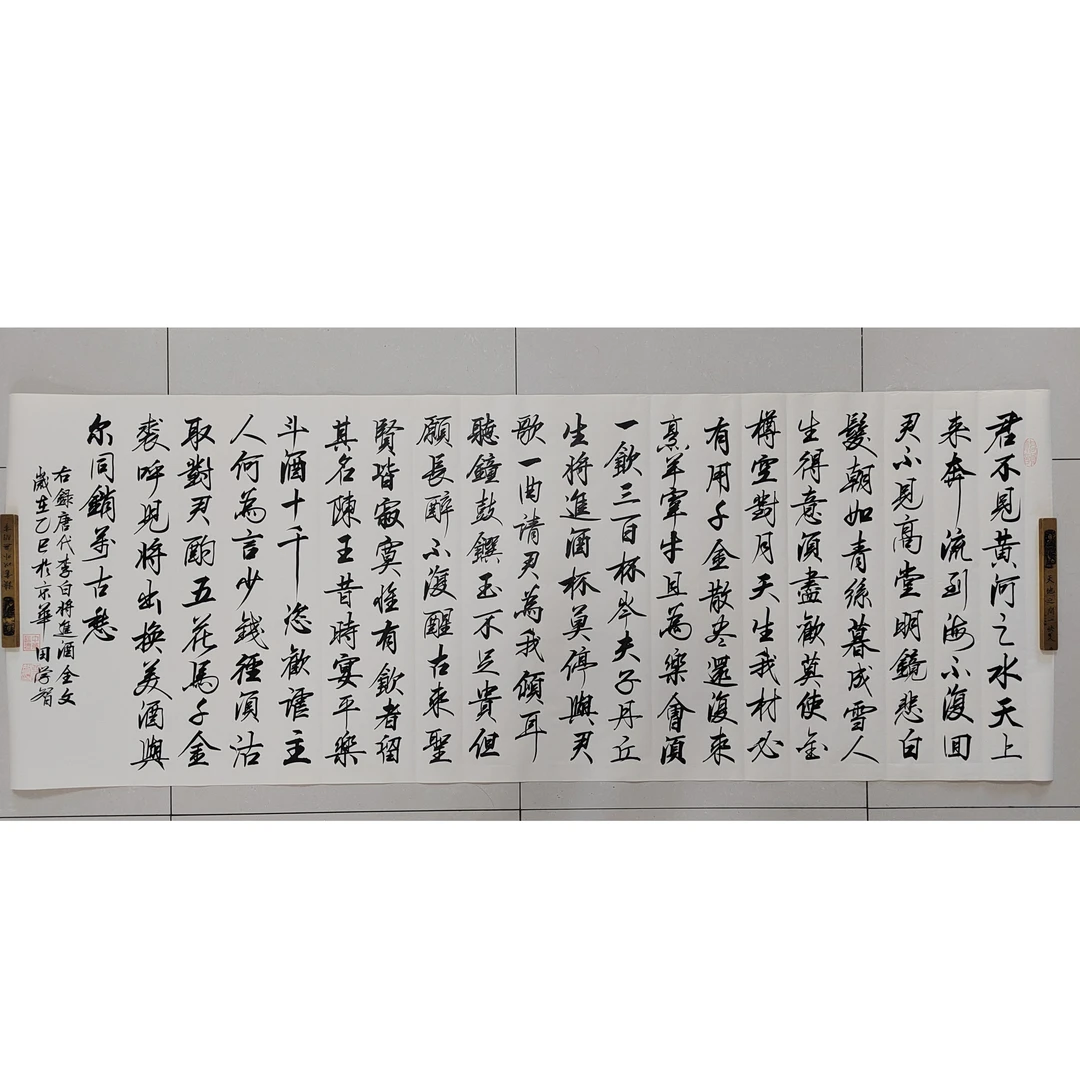 君不見黃河之水天上
来奔流到海不復回
君不見高堂明鏡悲白
髮朝如青絲暮成雪人
生得意須盡歡莫使金
樽空對月天生我材必
有用千金散盡還復來
烹羊宰牛且為樂會須
一飲三百杯岑夫子丹丘
生將進酒杯莫停與君
歌一曲請君為我傾耳
聽鐘鼓饌玉不足貴但
願長醉不復醒古來聖
賢皆寂寞惟有飲者留
其名陳王昔時宴平樂
斗酒十千恣歡謔主
人何為言少錢徑須沽
取對君酌五花馬千金
裘呼兒將出換美酒與
尔同銷萬古愁
右錄唐代李白將進酒全文
歲在乙巳於京華 田学智